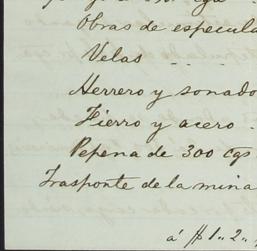 Obras de especula
Velas
Herrero y sonado
Fierro y acero
Pepena de 300 cgs
Trasponte de la mina
á $1"2"